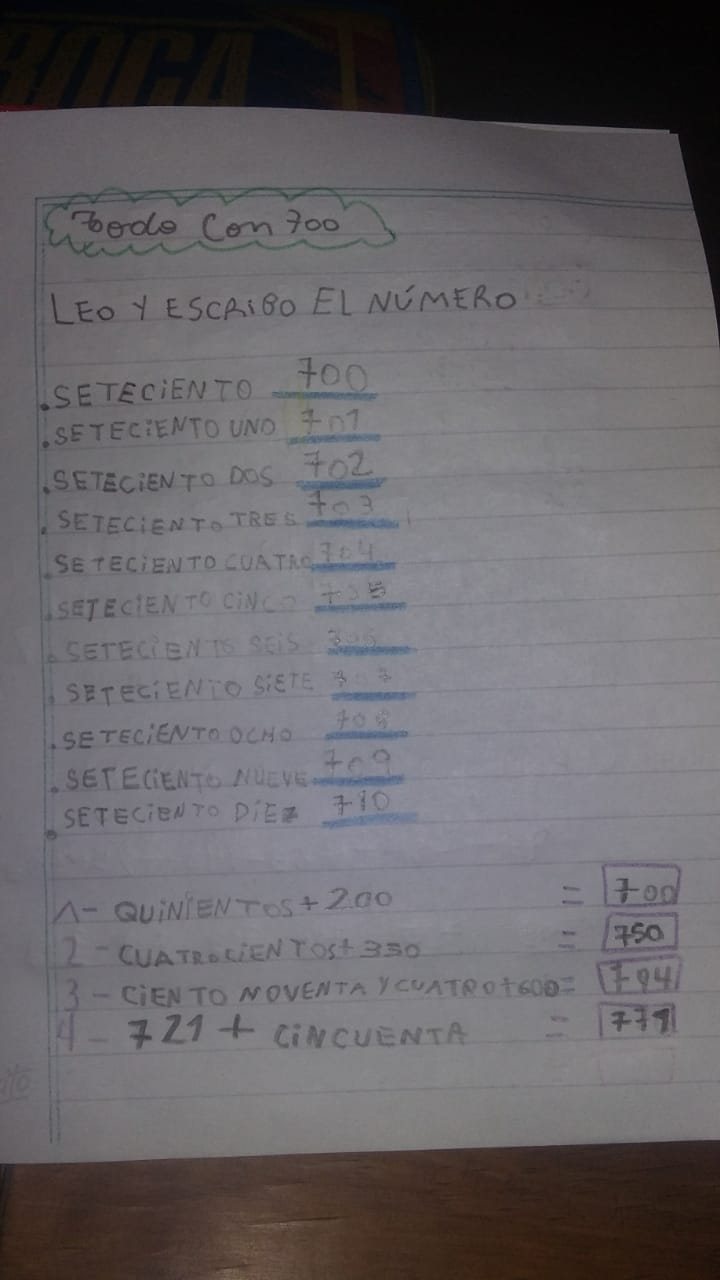 BOCA
Todo Con 700
LEO Y ESCRIBO EL NÚMERO
.SETECIENTO 700
.SETECIENTO UNO 701
.SETECIENTO DOS 702
.SETECIENTO TRES 703
.SETECIENTO CUATRO 704
.SETECIENTO CINCO 705
.SETECIENTO SEIS 706
.SETECIENTO SIETE 707
.SETECIENTO OCHO 708
.SETECIENTO NUEVE 709
.SETECIENTO DIEZ 710
1- QUINIENTOS + 200 = 700
2- CUATROCIENTOS + 350 = 750
3- CIENTO NOVENTA Y CUATRO + 600 = 794
4- 721 + CINCUENTA = 771